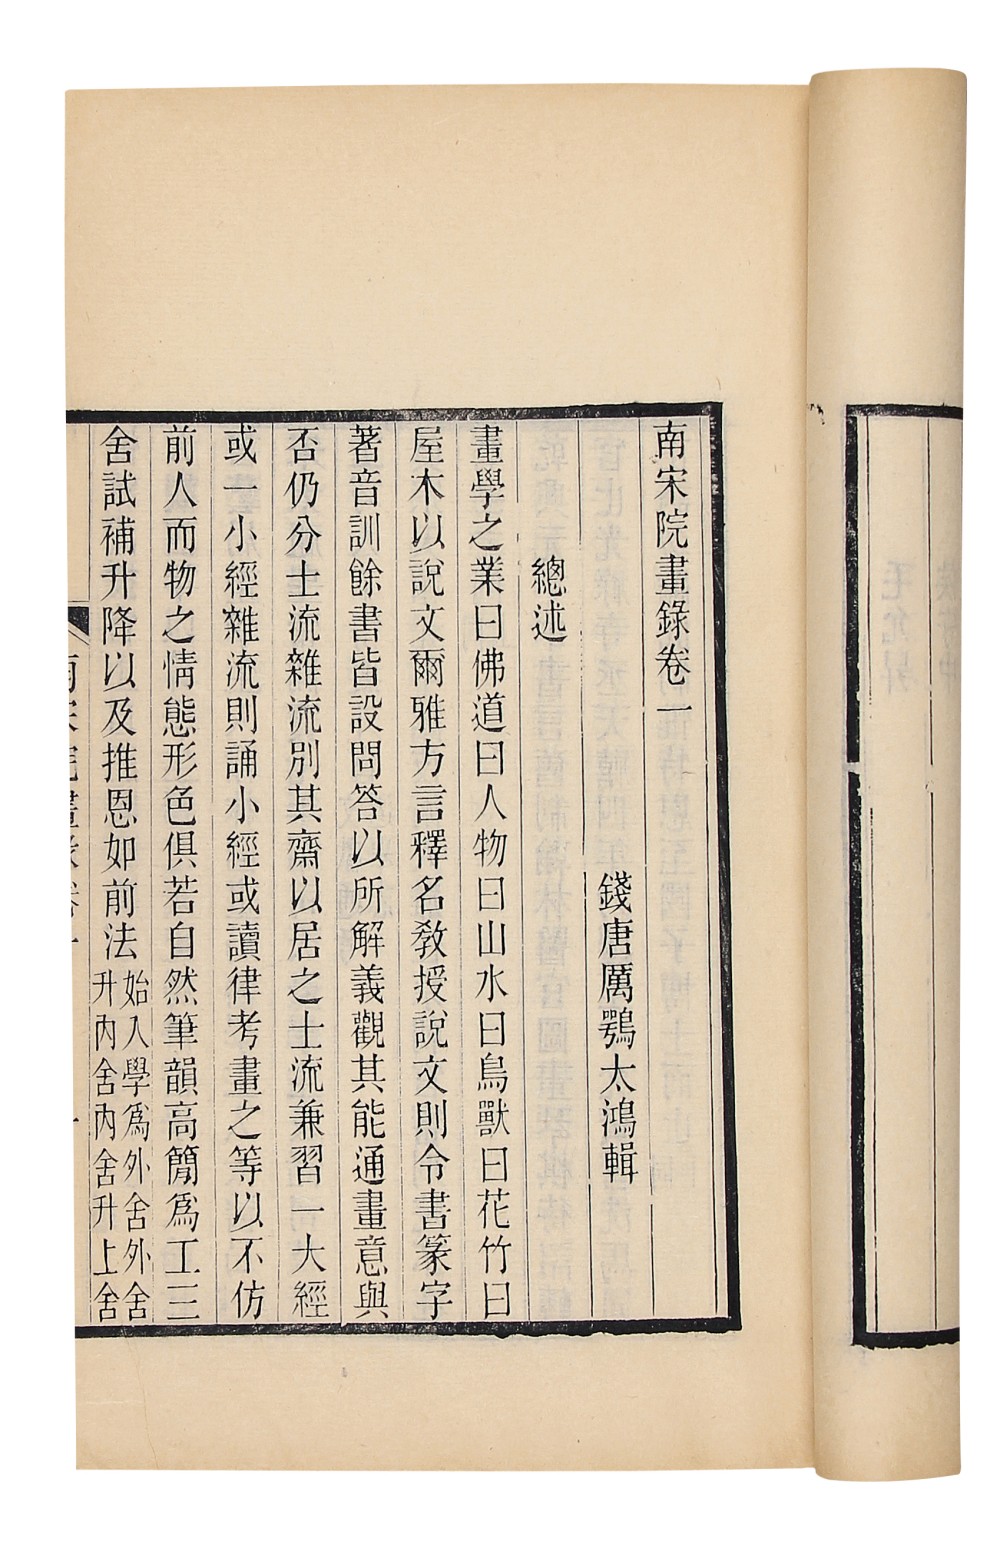 南宋院畫錄卷一
錢唐厲鶚太鴻輯
總述
畫學之業曰佛道曰人物曰山水曰鳥獸曰花竹曰
屋木以說文爾雅方言釋名教授說文則令書篆字
著音訓餘書皆設問答以所解義觀其能通畫意與
否仍分士流雜流別其齋以居之士流兼習一大經
或一小經雜流則誦小經或讀律考畫之等以不仿
前人而物之情態形色俱若自然筆韻高簡爲工三
舍試補升降以及推恩如前法
始入學爲外舍外舍
升內舍內舍升上舍
南宋院畫錄卷一
一